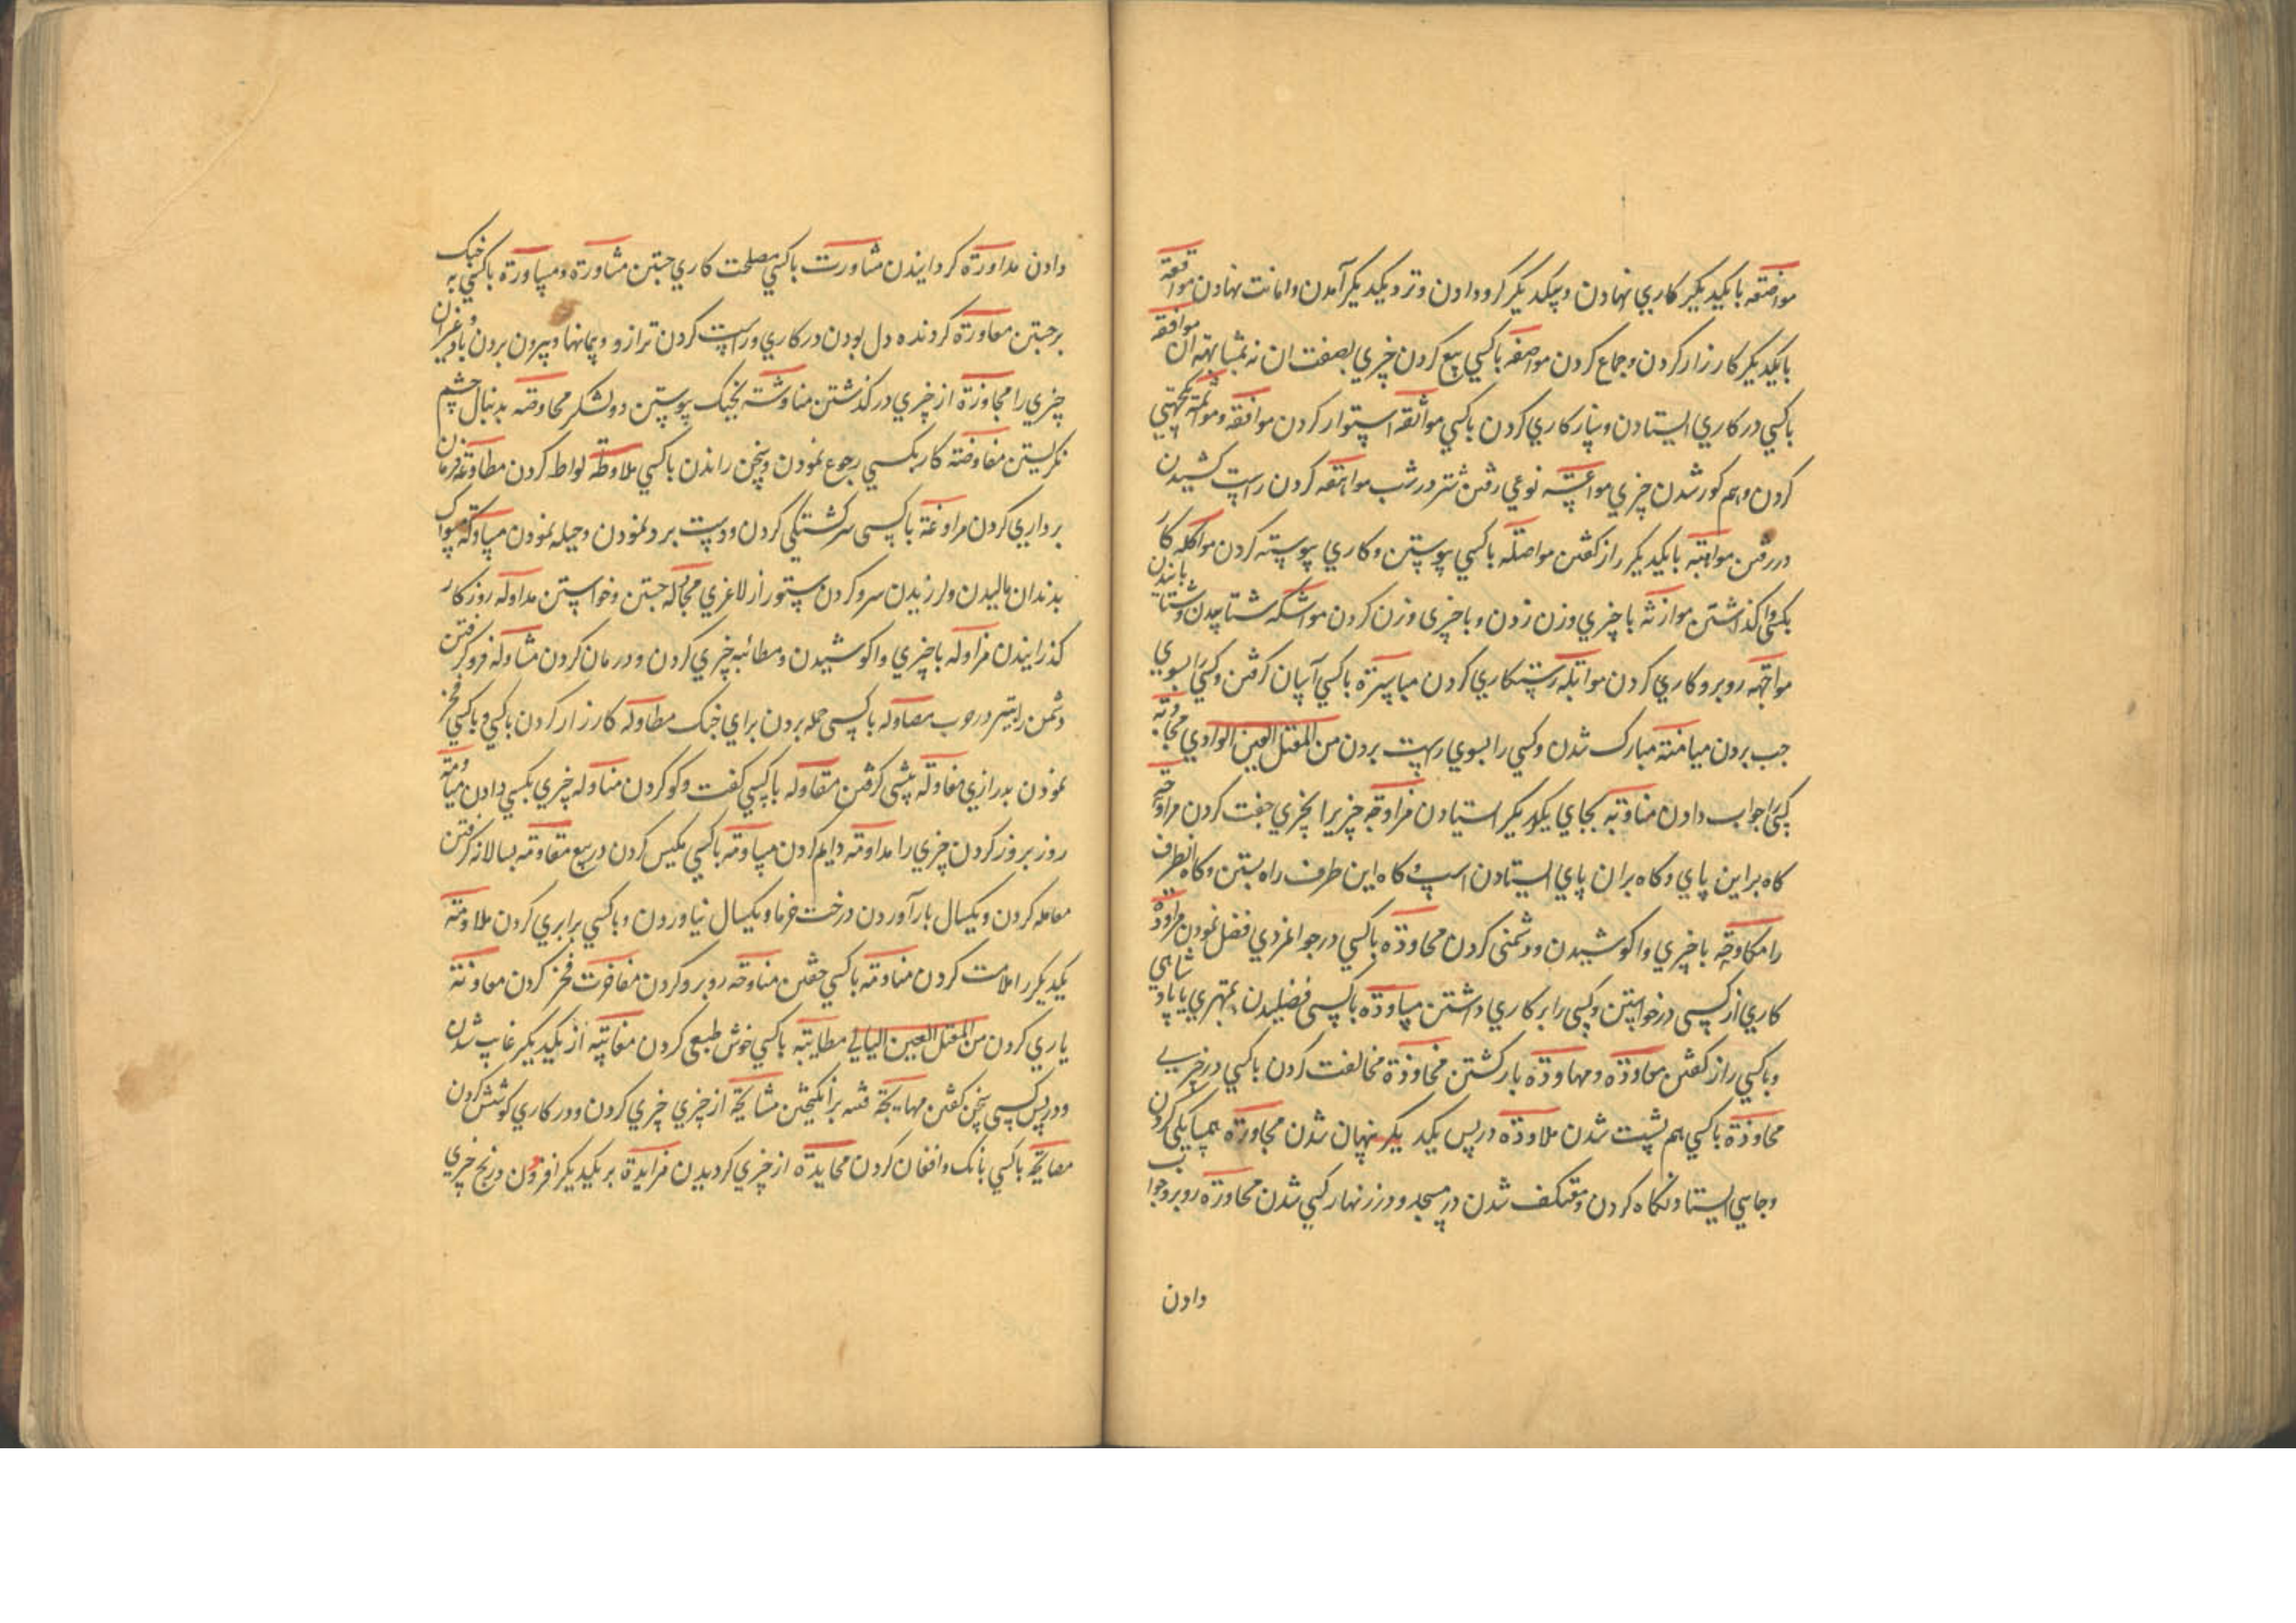 مواضعه بایکیدیکر کاری نهادن وبیکدیکر کرو دادن ونزد یکدیکر آمدن وامانت نهادن مواقعة
بایکدیکر کارزار کردن وجماع کردن مواصفه باکسی بیع کردن چیزی بصفت ان نه بمشابهه ان موافقه
باکسی در کاری ایستادن وبناز کاری کردن باکسی مواثقه استوار کردن موافقه
کردن وهم کور شدن چیزی نوعی رفتن شتر در شب مواهقه کردن راست کشیدن
در رفتن بایکدیکر راز کفتن مواصله باکسی پیوستن وکاری پیوسته کردن مواکله کار
بکسی واکذاشتن موازنه با چیزی وزن زدن وبا چیزی وزن کردن مواشکه شتابیدن وشتابانیدن
مواجهه روبرو کاری کردن رستکاری کردن میاسرة باکسی آسان کرفتن وکسی را بسوی
جب بردن میامنة مبارک شدن وکسی را بسوی راست بردن من المعتل العین الواوی مجاوبة
کسی را جواب دادن مناوبة بجای یکدیکر استیادن مزاوجه چیزیرا بچیزی جفت کردن مراوحة
کاه بر این پای وکاه بران پای ایستادن اسپ وکاه این طرف راه بستن وکاه انطرف
را مکاوحه با چیزی واکوشیدن ودشمنی کردن مجاودة باکسی در جوانمردی فضل نمودن مراودة
کاری از کسی درخواستن وکسی را بر کاری داشتن مساودة باکسی بمهتری یا بسیاهی
وباکسی راز کفتن معاودة ومهاودة باز کشتن مخاوذة مخالفت کردن باکسی در چیزی
محاوذة باکسی هم پشت شدن ملاوذة در پس یکدیکر پنهان شدن مجاورة همسایکی کردن
وجایی ایستاد ونکاه کردن ومعتکف شدن در مسجد ودر زنهار کسی شدن محاورة روبرو جواب
دادن
دادن مداورة کردانیدن مشاورت باکسی مصلحت کاری جستن مشاورة ومساورة باکسی به جنک
برجستن معاورة کردنده دل بودن در کاری وراست کردن ترازو وپیمانها وبیرون بردن
چیزی را مجاوزة از چیزی درکذشتن مناوشة بجنک پیوستن دو لشکر محاوصة بدنبال چشم
نکریستن مفاوضة کار بکسی رجوع نمودن وسخن راندن باکسی ملاوطة لواط کردن مطاوعة فرمان
برداری کردن مراوغة باکسی سرکشتکی کردن ودست برد نمودن وحیله نمودن مساوکة سواک
بدندان مالیدن ولرزیدن سرو کردن ستور از لاغری محاولة جستن وخواستن مداولة روزکار
کذرانیدن مزاولة با چیزی واکوشیدن ومطالبه چیزی کردن ودرمان کردن مشاولة فرو کرفتن
دشمن را نیز در حرب مصاولة باکسی حمله بردن برای جنک مطاولة کارزار کردن باکسی وباکسی فخر
نمودن بدرازی مغاولة پیشی کرفتن مقاولة باکسی کفت وکو کردن مناولة چیزی بکسی دادن میاومة
روز بروز کردن چیزی را مداومة دایم کردن مساومة باکسی مکیس کردن در بیع معاومة بسالانه کرفتن
معامله کردن ویکسال بار آوردن درخت خرما ویکسال نیاوردن وباکسی برابری کردن ملاومة
یکدیکر را ملامت کردن مناومة باکسی خفتن مناوحة روبرو کردن مفاخرت فخر کردن معاونة
یاری کردن من المعتل العین الیائی مطایبة باکسی خوش طبعی کردن مغایبة از یکدیکر غایب شدن
ودر پس کسی سخن کفتن مهایجة فتنه برانکیختن مشایحة از چیزی کردن ودر کاری کوشش کردن
مصایحة باکسی بانک وافغان کردن محایدة از چیزی کردیدن مزایدة بر یکدیکر افزودن در نرخ چیزی